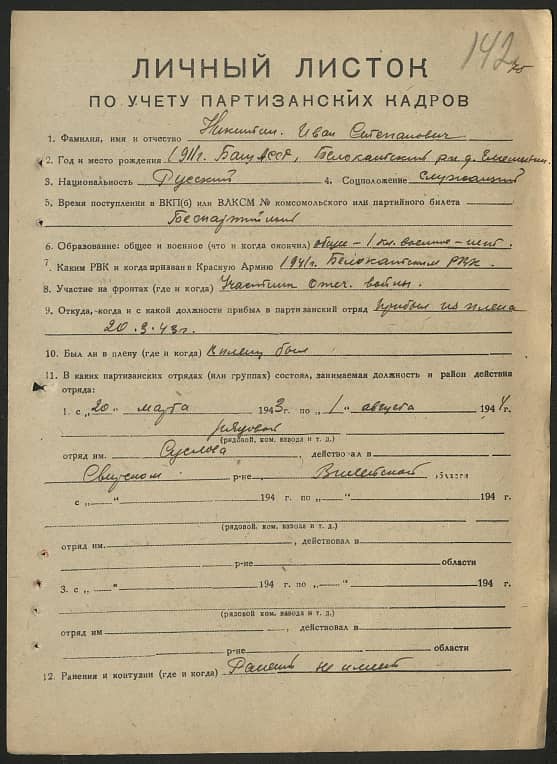 142
ЛИЧНЫЙ ЛИСТОК
ПО УЧЕТУ ПАРТИЗАНСКИХ КАДРОВ
1. Фамилия, имя и отчество Никитин. Иван Степанович
2. Год и место рождения 1911г. Баш АССР, Белокатайский р-н д.
3. Национальность Русский 4. Соцположение служащий
5. Время поступления в ВКП(б) или ВЛКСМ № комсомольского или партийного билета
Беспартийный
6. Образование: общее и военное (что и когда окончил) общее - 1 кл. военное - нет.
7. Каким РВК и когда призван в Красную Армию 1941г. Белокатайским РВК.
8. Участие на фронтах (где и когда) Участник отеч. войны.
9. Откуда, когда и с какой должности прибыл в партизанский отряд Прибыл из плена
20.3.43г.
10. Был ли в плену (где и когда) В плену был
11. В каких партизанских отрядах (или группах) состоял, занимаемая должность и район действия
отряда:
1. с „20" марта 1943г. по „1" августа 1944г.
рядовой
(рядовой, ком. взвода и т. д.)
отряд им. Суслова, действовал в
Свирском р-не, Вилейской области
с „ " 194 г. по „ " 194 г.
(рядовой, ком. взвода и т. д.)
отряд им. , действовал в
р-не области
3. с „ " 194 г. по „ " 194 г.
(рядовой, ком. взвода и т. д.)
отряд им , действовал в
р-не области
12. Ранения и контузии (где и когда) Ранений не имеет